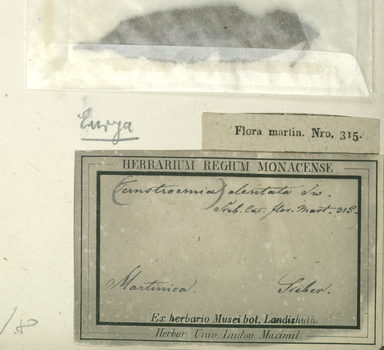 Eurya
Flora martin. Nro. 315.
HERBARIUM REGIUM MONACENSE
(Ternstroemia) dentata Sw.
Sieb. Cat. flor. Mart. 315.
Martinica Sieber.
Ex herbario Musei bot. Landishuth.
Herbar. Univ. Ludov. Maximil.